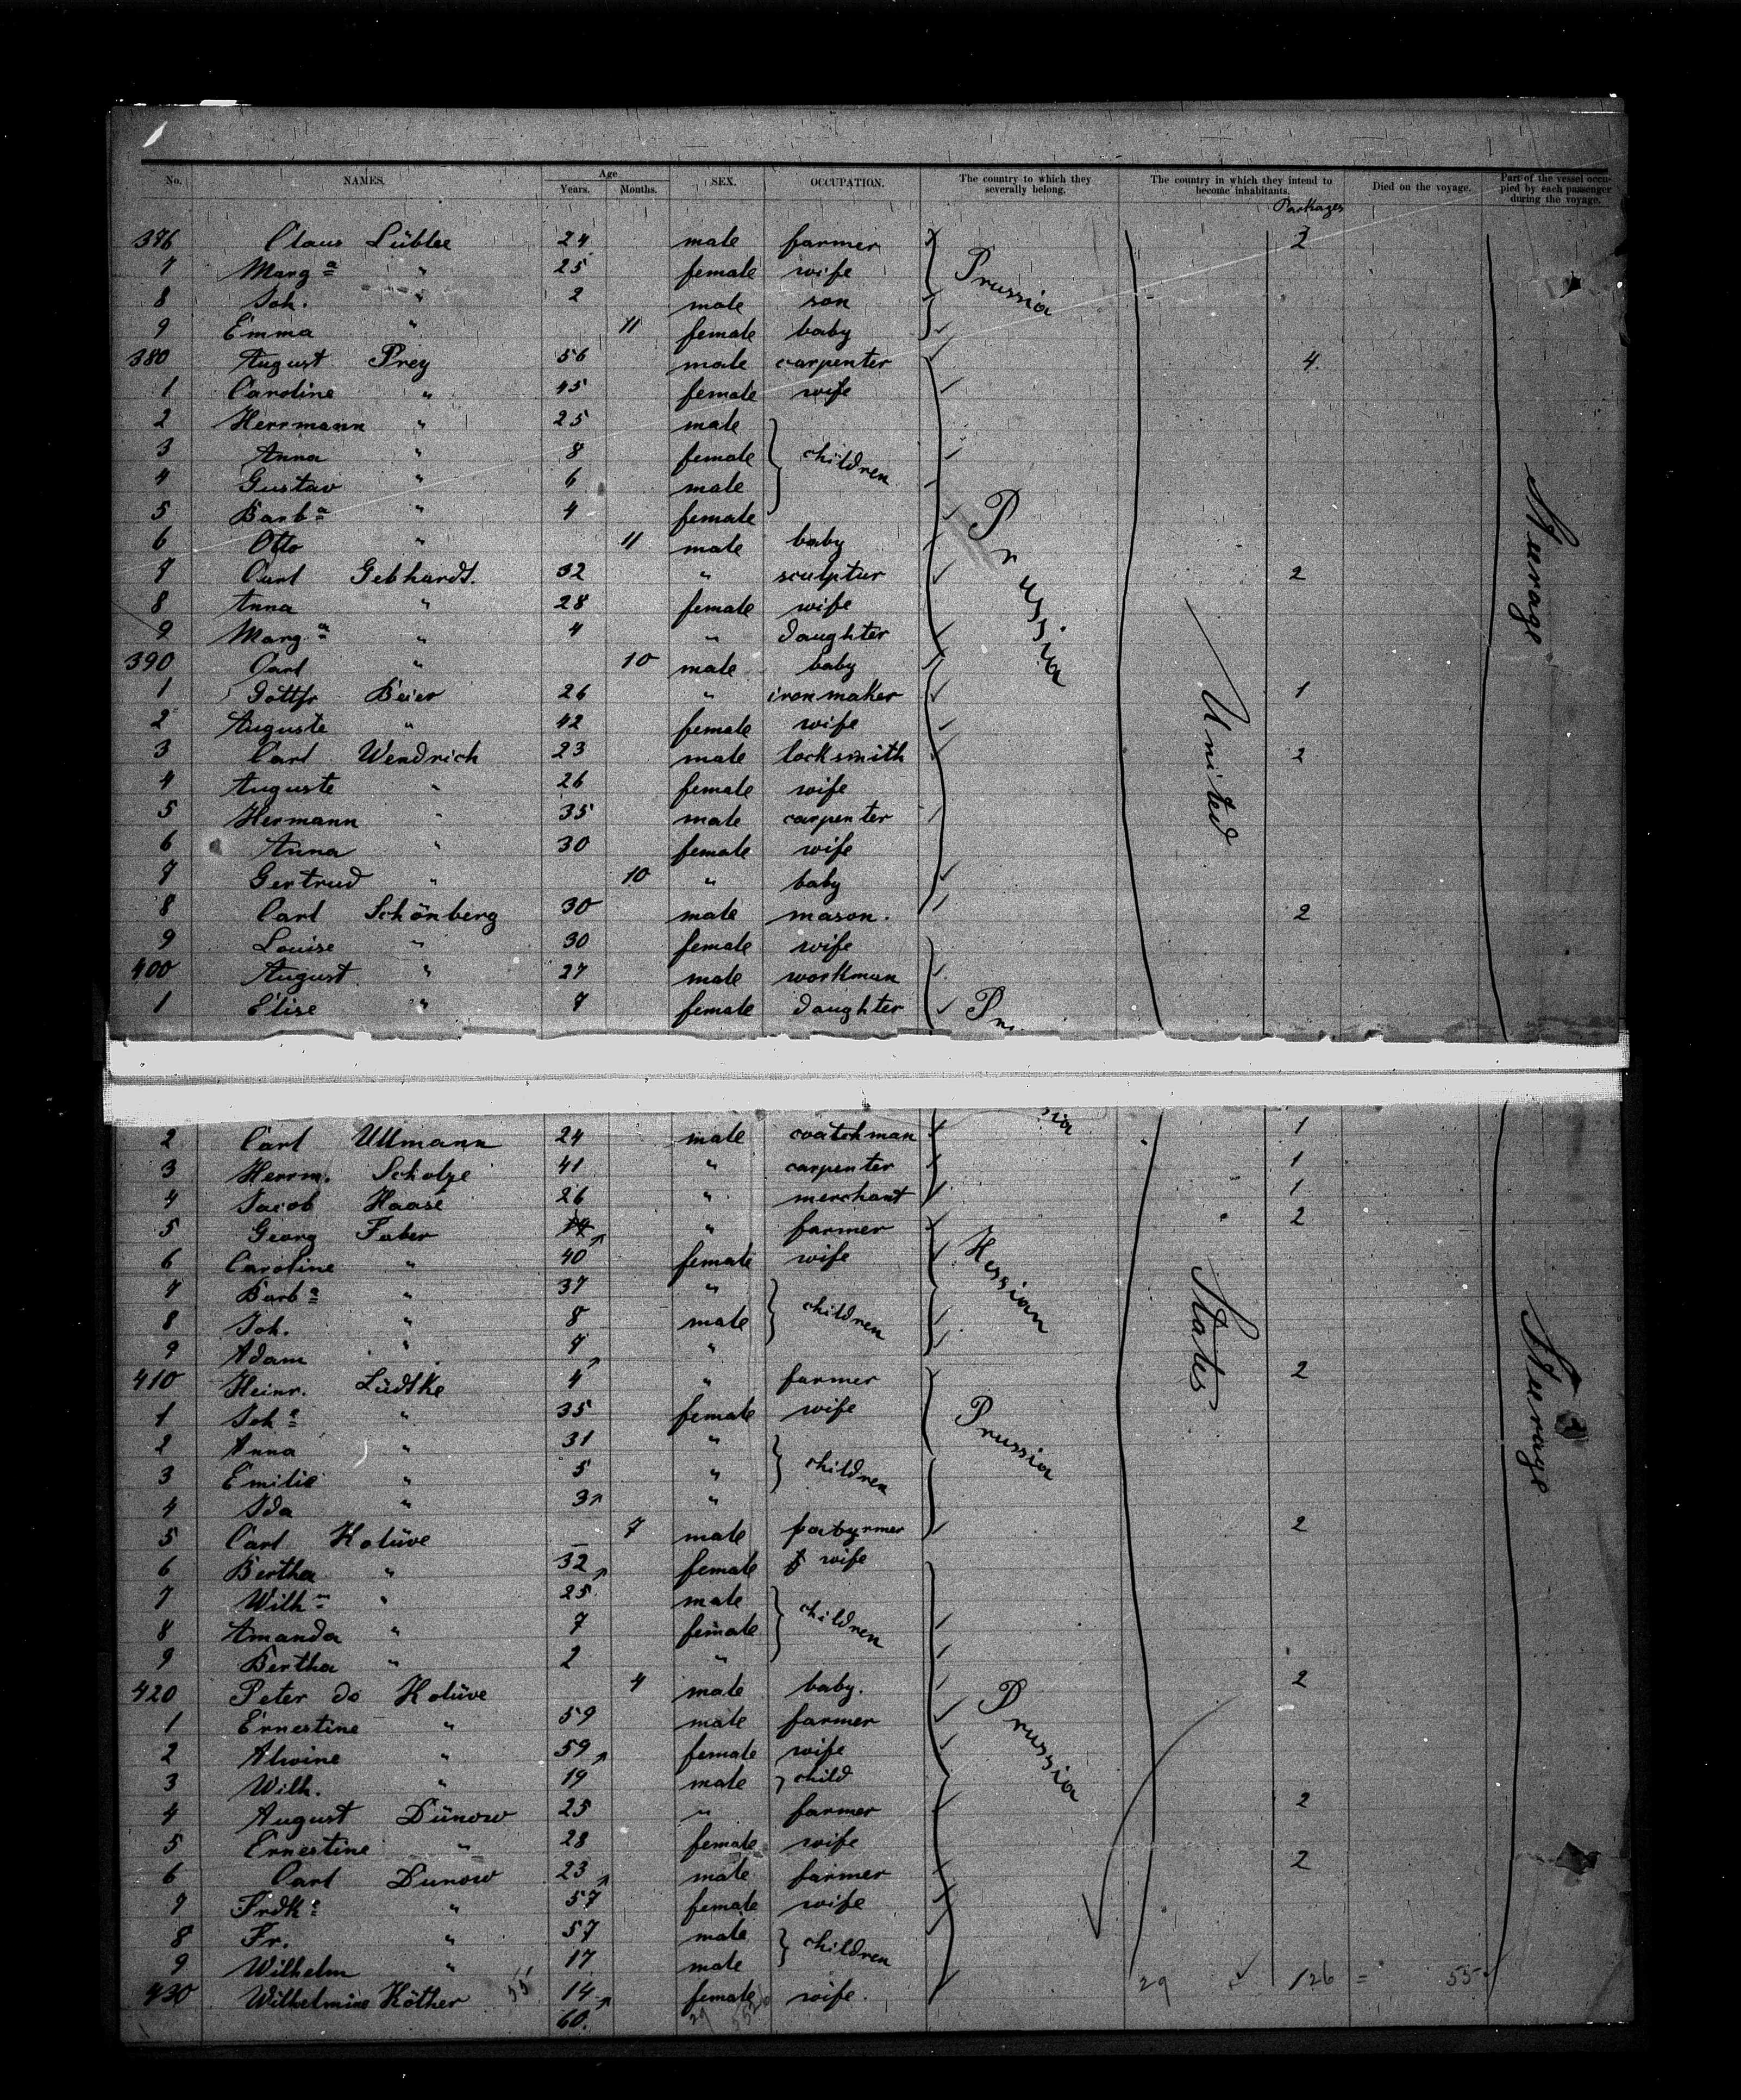 No. NAMES. Age Years. Months. SEX. OCCUPATION. The country to which they severally belong. The country in which they intend to become inhabitants. Died on the voyage. Part of the vessel occupied by each passenger during the voyage.
Packages
376 Claus 24 male farmer 2
7 Marga " 25 female wife Prussia
8 Joh. " 2 male son
9 Emma " 11 female baby
380 August Prey 56 male carpenter 4
1 Caroline " 45 female wife
2 Herrmann " 25 male
3 Anna " 8 female children
4 Gustav " 6 male
5 Barba " 4 female Prussia
6 Otto " 11 male baby
7 Carl Gebhardt. 32 " sculptur 2
8 Anna " 28 female wife
9 Marga " 4 " daughter
390 Carl " 10 male baby
1 Gottfr Beier 26 " iron maker 1
2 Auguste " 42 female wife
3 Carl Wendrich 23 male locksmith 2
4 Auguste " 26 female wife
5 Hermann " 35 male carpenter
6 Anna " 30 female wife
7 Gertrud " 10 " baby
8 Carl Schönberg 30 male mason. 2
9 Louise " 30 female wife
400 August " 27 male workman
1 Elise " 7 female daughter
United
Steerage
2 Carl Ullmann 24 male coatchman 1
3 Herrm. Scholze 41 " carpenter 1
4 Jacob Haase 26 " merchant 1
5 Georg Faber " farmer 2
6 Caroline " 40 female wife Hessian
7 Barba " 37 "
8 Joh. " 8 male children
9 Adam " 7 "
410 Heinr. Lüdtke 4 " farmer 2
1 Joha " 35 female wife Prussia
2 Anna " 31 "
3 Emilie " 5 " children
4 Ida " 3 "
5 Carl Kolüve 7 male 2
6 Bertha " 32 female wife
7 Wilhm " 25 male
8 Amanda " 7 female children
9 Bertha " 2 "
420 Peter do Kolüve 4 male baby. 2
1 Ernestine " 59 male farmer Prussia
2 Alwine " 59 female wife
3 Wilh. " 19 male child
4 August Dünow 25 " farmer 2
5 Ernestine " 28 female wife
6 Carl Dunow 23 male farmer 2
7 Frdka " 57 female wife
8 Fr. " 57 male
9 Wilhelm " 17 male children
430 Wilhelmine Köther 55 14 female wife. 29 126 = 55
60. 29
States
Steerage